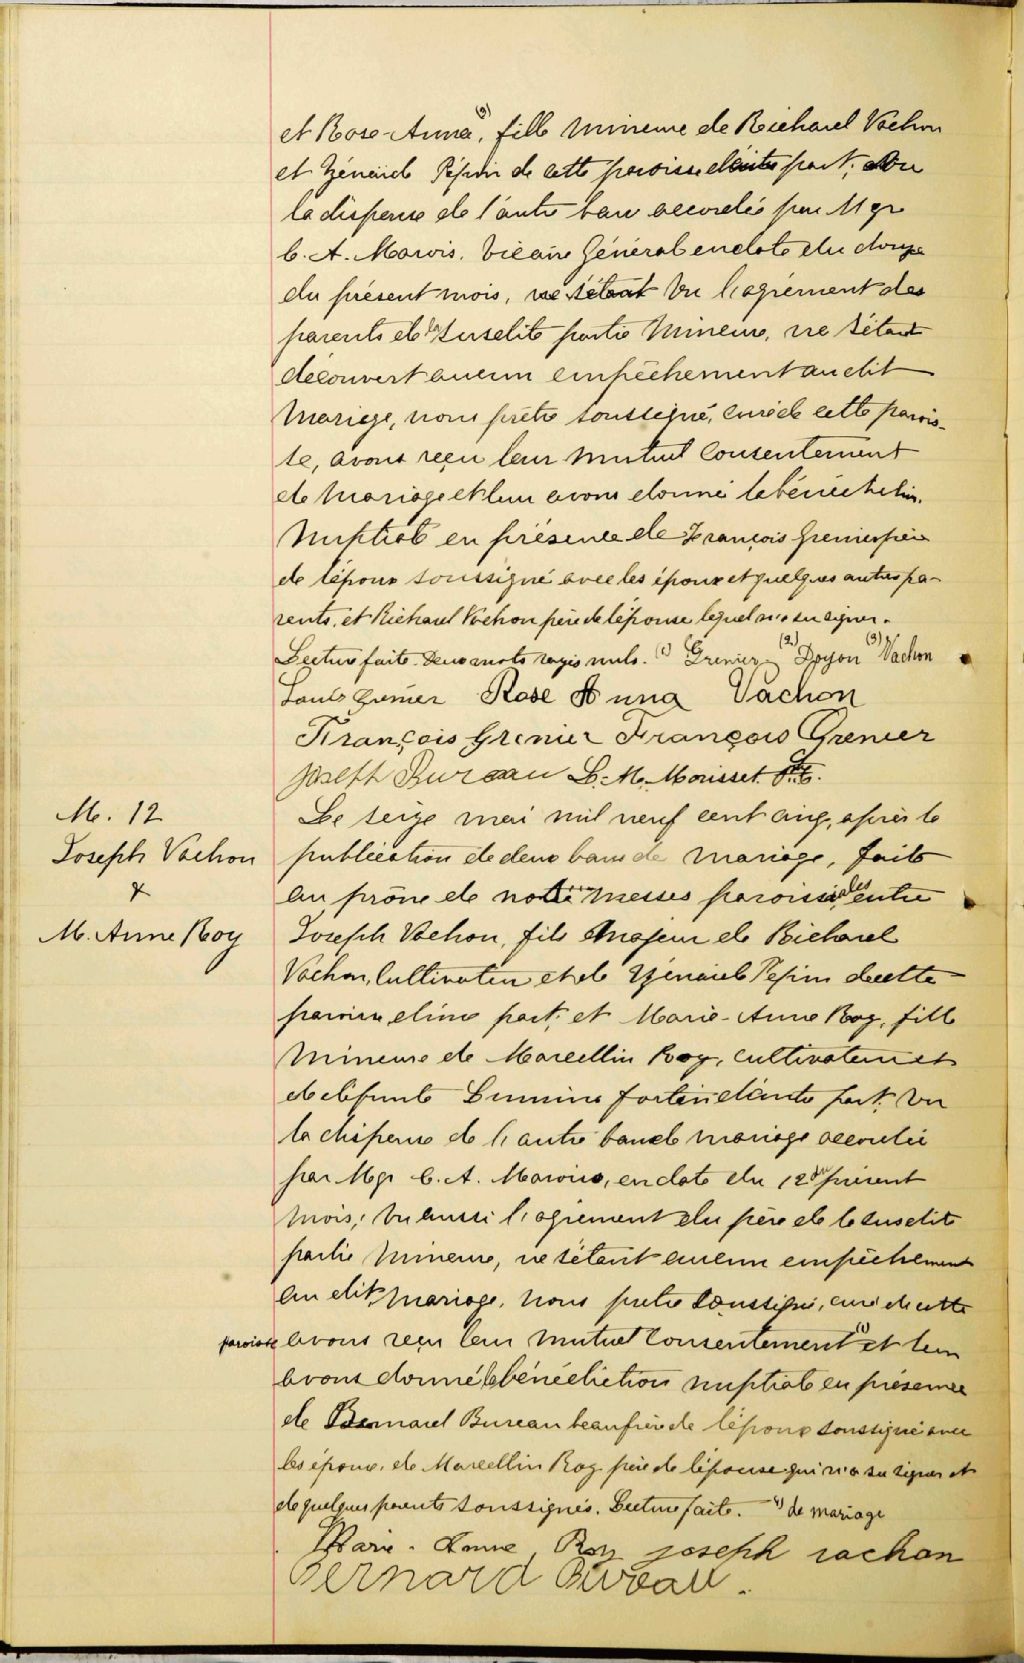 et Rose-Anna (3), fille mineure de Richard Vachon
et Zénaïde Pépin de cette paroisse d'autre part; Vu
la dispense de l'autre ban accordée par Mgr
C. A. Marois, Vicaire Général en date du douze
du présent mois, ne s'étant Vu l'agrément des
parents de la susdite partie mineure, ne s'étant
découvert aucun empêchement au dit
mariage, nous prêtre soussigné, curé de cette parois-
se, avons reçu leur mutuel consentement
de mariage et leur avons donné la bénédiction
nuptiale en présence de François Grenier père
de l'époux soussigné avec les époux et quelques autres pa-
rents, et Richard Vachon père de l'épouse lequel n'a su signer.
Lecture faite. Deux mots rayés nuls. (1) Grenier (2) Doyon (3) Vachon
Louis Grenier Rose Anna Vachon
François Grenier François Grenier
Joseph Bureau L. M. Morisset Ptre.
M. 12
Joseph Vachon
&
M. Anne Roy
Le seize mai mil neuf cent cinq, après la
publication de deux bans de mariage, faite
au prône de nos messes paroissiales entre
Joseph Vachon, fils majeur de Richard
Vachon, Cultivateur et de Zénaïde Pépin de cette
paroisse d'une part; et Marie-Anne Roy, fille
mineure de Marcellin Roy, cultivateur et
de défunte Lumina Fortin d'autre part; Vu
la dispense de l'autre ban de mariage accordée
par Mgr C. A. Marois, en date du 12 du présent
mois; vu aussi l'agrément du père de la susdite
partie mineure, ne s'étant aucun empêchement
au dit mariage, nous prêtre soussigné, curé de cette
paroisse avons reçu leur mutuel consentement (1) et leur
avons donné la bénédiction nuptiale en présence
de Bernard Bureau beau frère de l'époux soussigné avec
les époux, de Marcellin Roy père de l'épouse qui n'a su signer et
de quelques parents soussignés. Lecture faite. (1) de mariage
Marie-Anne Roy joseph vachon
Bernard Bureau.